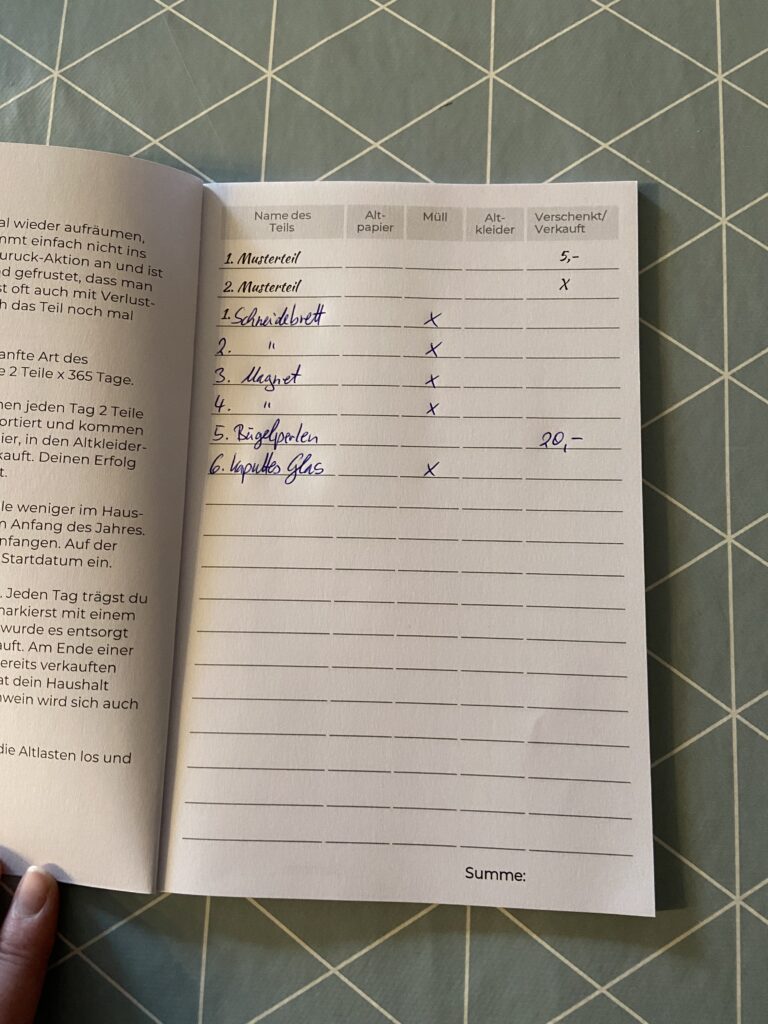 al wieder aufräumen,
mmt einfach nicht ins
uruck-Aktion an und ist
d gefrustet, dass man
st oft auch mit Verlust-
h das Teil noch mal
anfte Art des
e 2 Teile x 365 Tage.
nen jeden Tag 2 Teile
ortiert und kommen
ier, in den Altkleider-
kauft. Deinen Erfolg
t.
le weniger im Haus-
n Anfang des Jahres.
nfangen. Auf der
Startdatum ein.
. Jeden Tag trägst du
markierst mit einem
wurde es entsorgt
auft. Am Ende einer
ereits verkauften
at dein Haushalt
nwein wird sich auch
die Altlasten los und
Name des Teils Alt-papier Müll Alt-kleider Verschenkt/Verkauft
1. Musterteil 5,-
2. Musterteil X
1. Schneidebrett X
2. " X
3. Magnet X
4. " X
5. Bügelperlen 20,-
6. kaputtes Glas X
Summe: